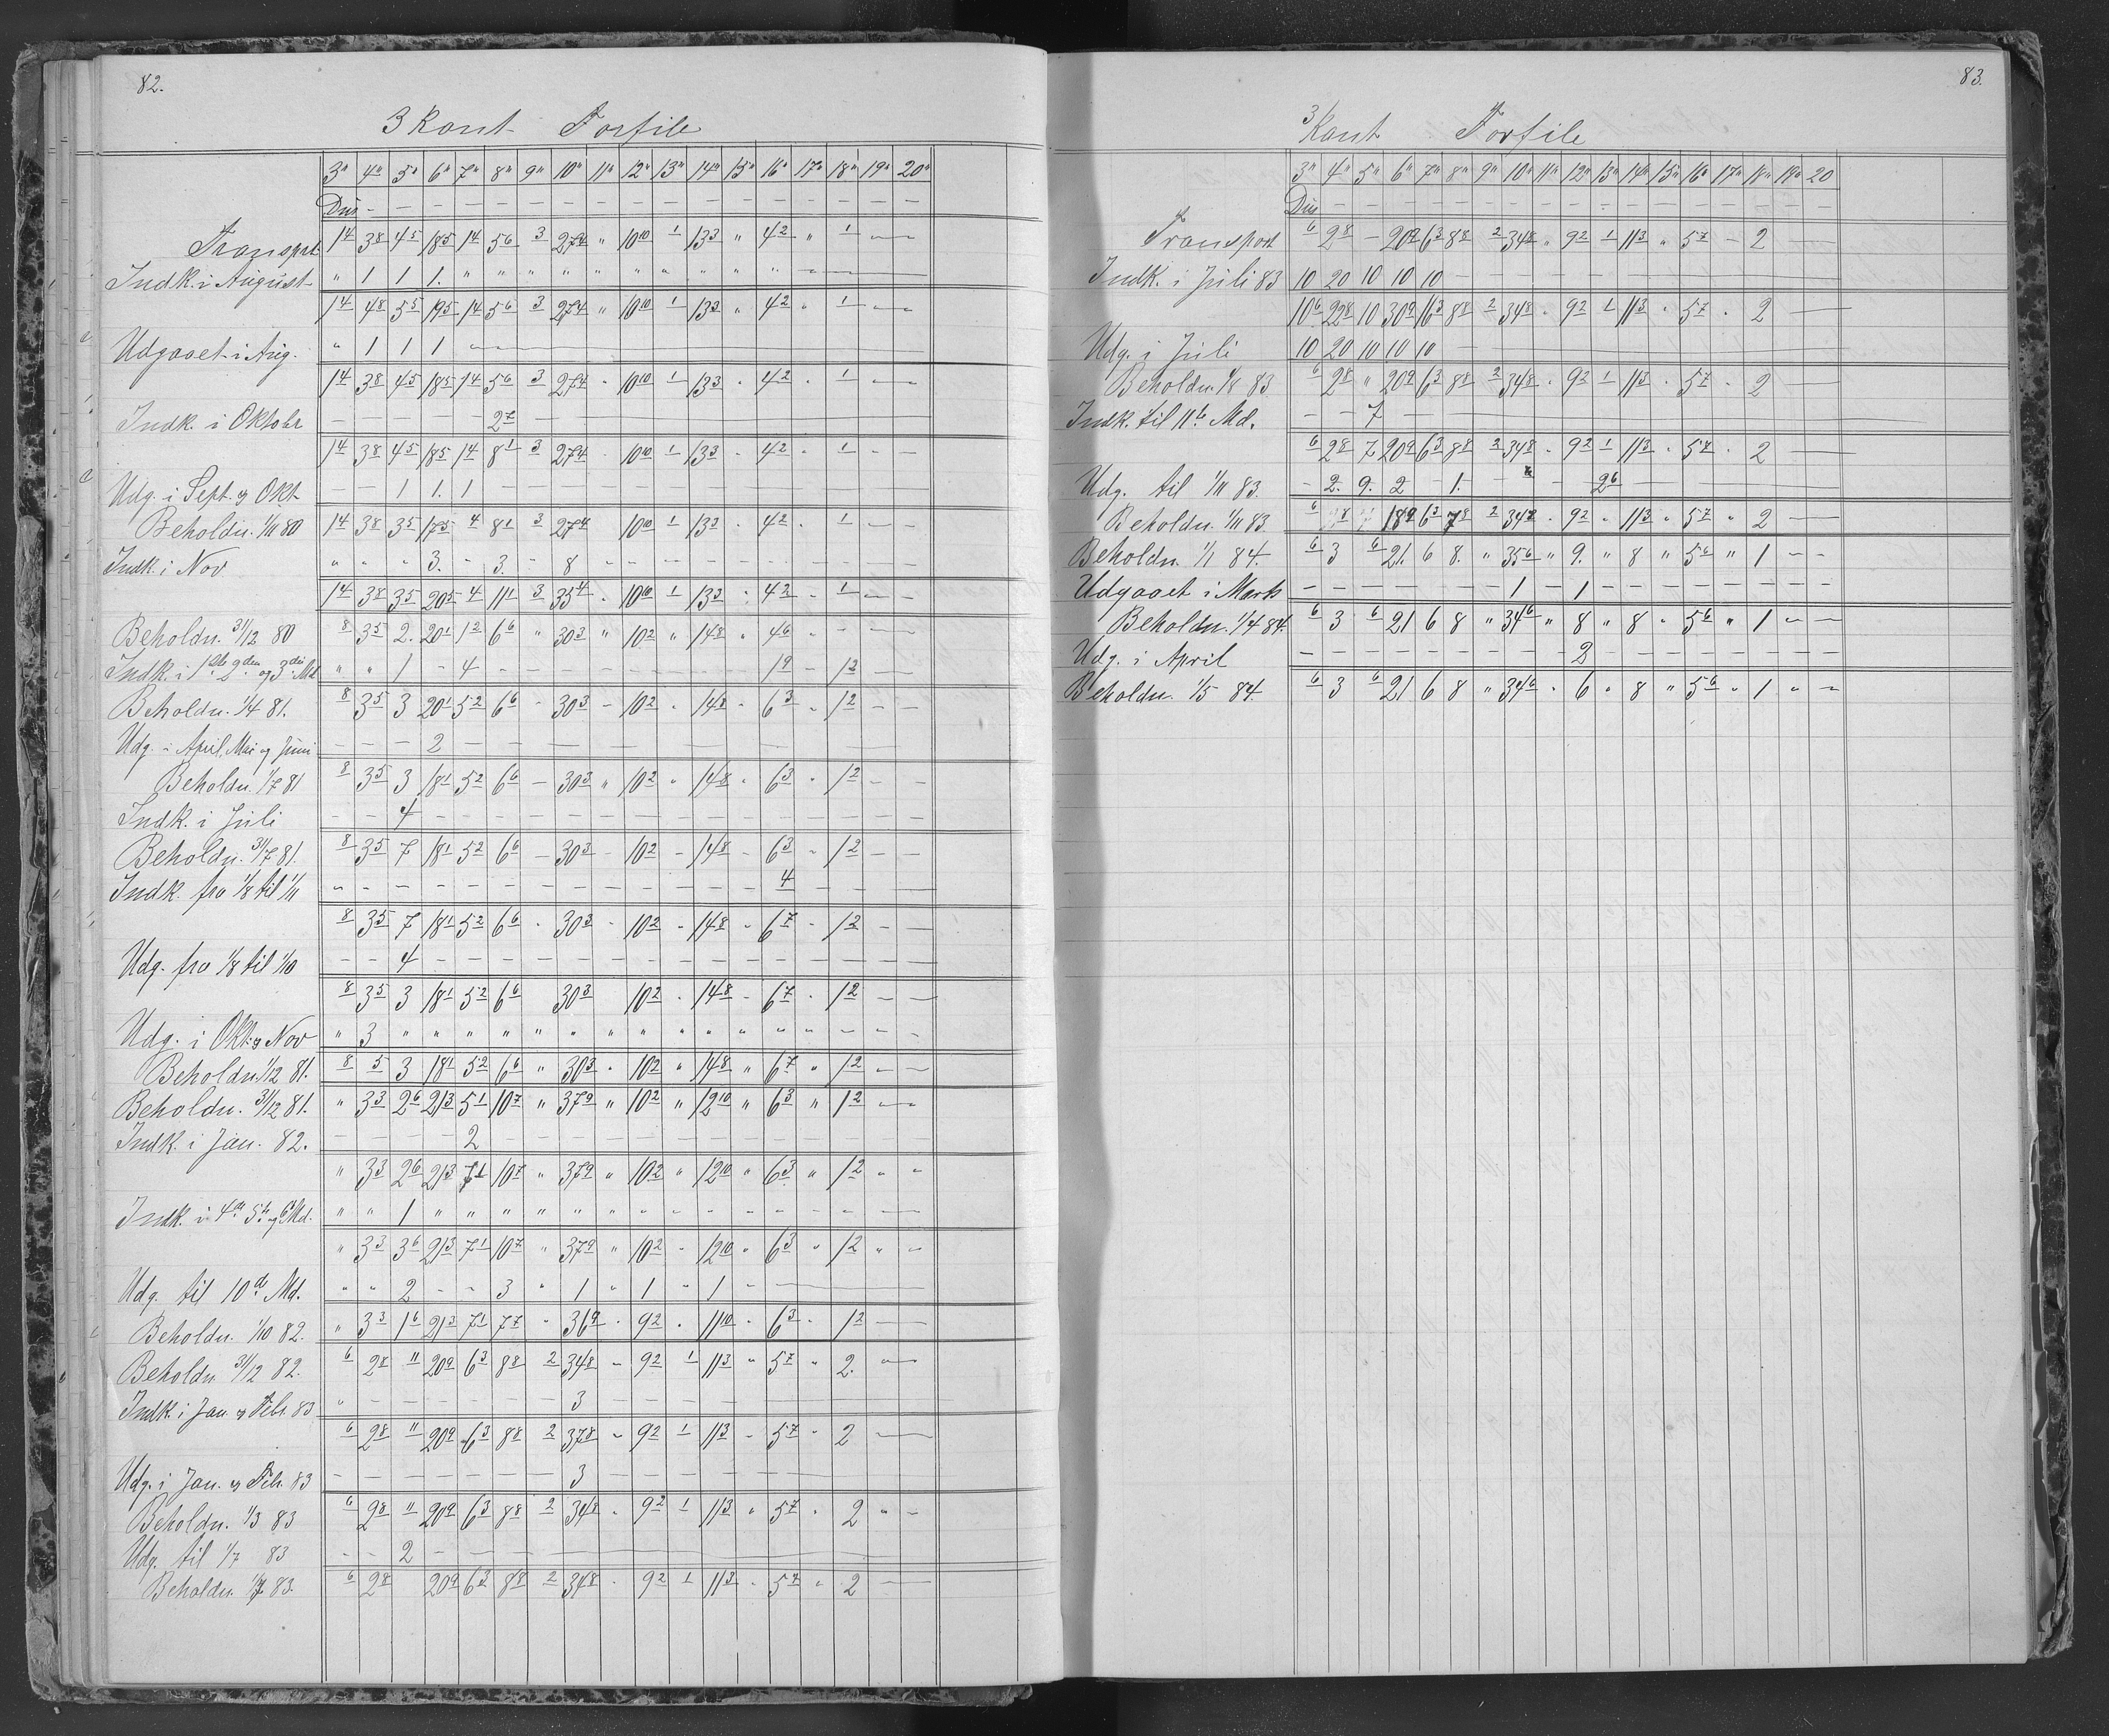 82.
3 Kant Forfile
3" 4" 5" 6" 7" 8" 9" 10" 11" 12" 13" 14" 15" 16" 17" 18" 19" 20"
Dus — — — — — — — — — — — — — — — — —
Transport 14 38 45 185 14 56 3 274 " 1010 1 133 " 42 " 1 — —
Indk. i August " 1 1 1. " " " " " " " " " " — —
14 48 55 195 14 56 3 274 " 1010 1 133 " 42 " 1 — —
Udgaaet i Aug. " 1 1 1 — —
14 38 45 185 14 56 3 274 - 1010 1 133 - 42 - 1 — —
Indk. i Oktobr — — — — — 27 —
14 38 45 185 14 81 3 274 - 1010 1 133 - 42 - 1 - —
Udg. i Sept. og Okt — — 1 1. 1 — —
Beholdn. 1/11 80 14 38 35 175 4 81 3 274 1010 1 133 - 42 - 1 — —
Indk. i Nov " " " 3. - 3. - 8 — —
14 38 35 205 4 111 3 354 - 1010 1 133 - 42 - 1 — —
Beholdn. 31/12 80 8 35 2. 201 12 66 " 303 " 102 " 148 " 46 " - — —
Indk. i 1ste 2den og 3die Md " " 1 - 4 - - - - - - - - 19 - 12 — —
Beholdn. 1/4 81. 8 35 3 201 52 66 - 303 - 102 - 148 - 63 - 12 — —
Udg. i April, Mai og Juni — — — 2 — — — — —
Beholdn. 1/7 81 8 35 3 181 52 66 — 303 " 102 " 148 - 63 " 12 — —
Indk. i Juli — — 4 — — —
Beholdn. 31/7 81. 8 35 7 181 52 66 — 303 - 102 - 148 - 63 - 12 — —
Indk. fra 1/8 til 1/11 — — — — — — — — — — — — — 4 — — —
8 35 7 181 52 66 - 303 - 102 - 148 - 67 - 12 — —
Udg. fra 1/8 til 1/10 — — 4 — — —
8 35 3 181 52 66 303 102 - 148 - 67 - 12 — —
Udg. i Okt. og Nov " 3 " " " " " " " " " " " " " - - -
Beholdn. 1/12 81. 8 5 3 181 52 66 " 303 - 102 " 148 " 67 " 12 — —
Beholdn. 31/12 81. " 33 26 213 51 107 " 379 " 102 " 1210 " 63 " 12 — —
Indk. i Jan. 82. — — — — 2 — — —
" 33 26 213 71 107 " 379 " 102 " 1210 " 63 " 12 " "
Indk. i 4de 5te og 6 Md. " " 1 " " " " " " - - - - - - - - -
" 33 36 213 71 107 " 379 " 102 - 1210 " 63 " 12 " "
Udg. til 10de Md. " " 2 - - 3 " 1 " 1 " 1 " —
Beholdn. 1/10 82. " 33 16 213 71 77 - 369 - 92 - 1110 - 63 - 12 —
Beholdn 31/12 82. 6 28 11 209 63 88 2 348 " 92 1 113 " 57 " 2. —
Indk. i Jan. og Febr. 83 " — — — — — — 3 — — —
6 28 11 209 63 88 2 378 - 92 1 113 - 57 - 2 —
Udg. i Jan. og Febr. 83 — — — — — — — 3 — — —
Beholdn. 1/3 83 6 28 11 209 63 88 2 348 - 92 1 113 " 57 - 2 " —
Udg. til 1/7 83 — — 2 — — —
Beholdn. 1/7 83. 6 28 209 63 88 2 348 - 92 1 113 - 57 " 2 —
83.
3 Kant Forfile
3" 4" 5" 6" 7" 8" 9" 10" 11" 12" 13" 14" 15" 16" 17" 18" 19" 20
Dus — — — — — — — — — — — — — — — — —
Transport 6 28 — 209 63 88 2 348 " 92 1 113 " 57 - 2 —
Indk. i Juli 83 10 20 10 10 10 — —
106 228 10 309 163 88 2 348 - 92 1 113 - 57 - 2 —
Udg. i Juli 10 20 10 10 10 — —
Beholdn. 1/8 83 6 28 " 209 63 88 2 348 - 92 1 113 - 57 - 2 —
Indk. til 11te Md. — — 7 — —
6 28 7 209 63 88 2 348 - 92 1 113 - 57 - 2 —
Udg. til 1/11 83. — 2. 9. 2 — 1. — — 26 — —
Beholdn. 1/11 83. 6 8 189 63 78 2 348 - 92 " 113 " 57 " 2 —
Beholdn. 1/1 84. 6 3 6 21. 6 8. " 356 " 9. " 8 " 56 " 1 — —
Udgaaet i Marts — — — — — — — 1 — 1 — — — — — — — —
Beholdn. 1/4 84. 6 3 6 21 6 8 " 346 " 8 " 8 - 56 " 1 — —
Udg. i April — — — — — — — — — 2 — — — — — — — —
Beholdn. 1/5 84. 6 3 6 21 6 8 " 346 - 6 " 8 " 56 " 1 " —